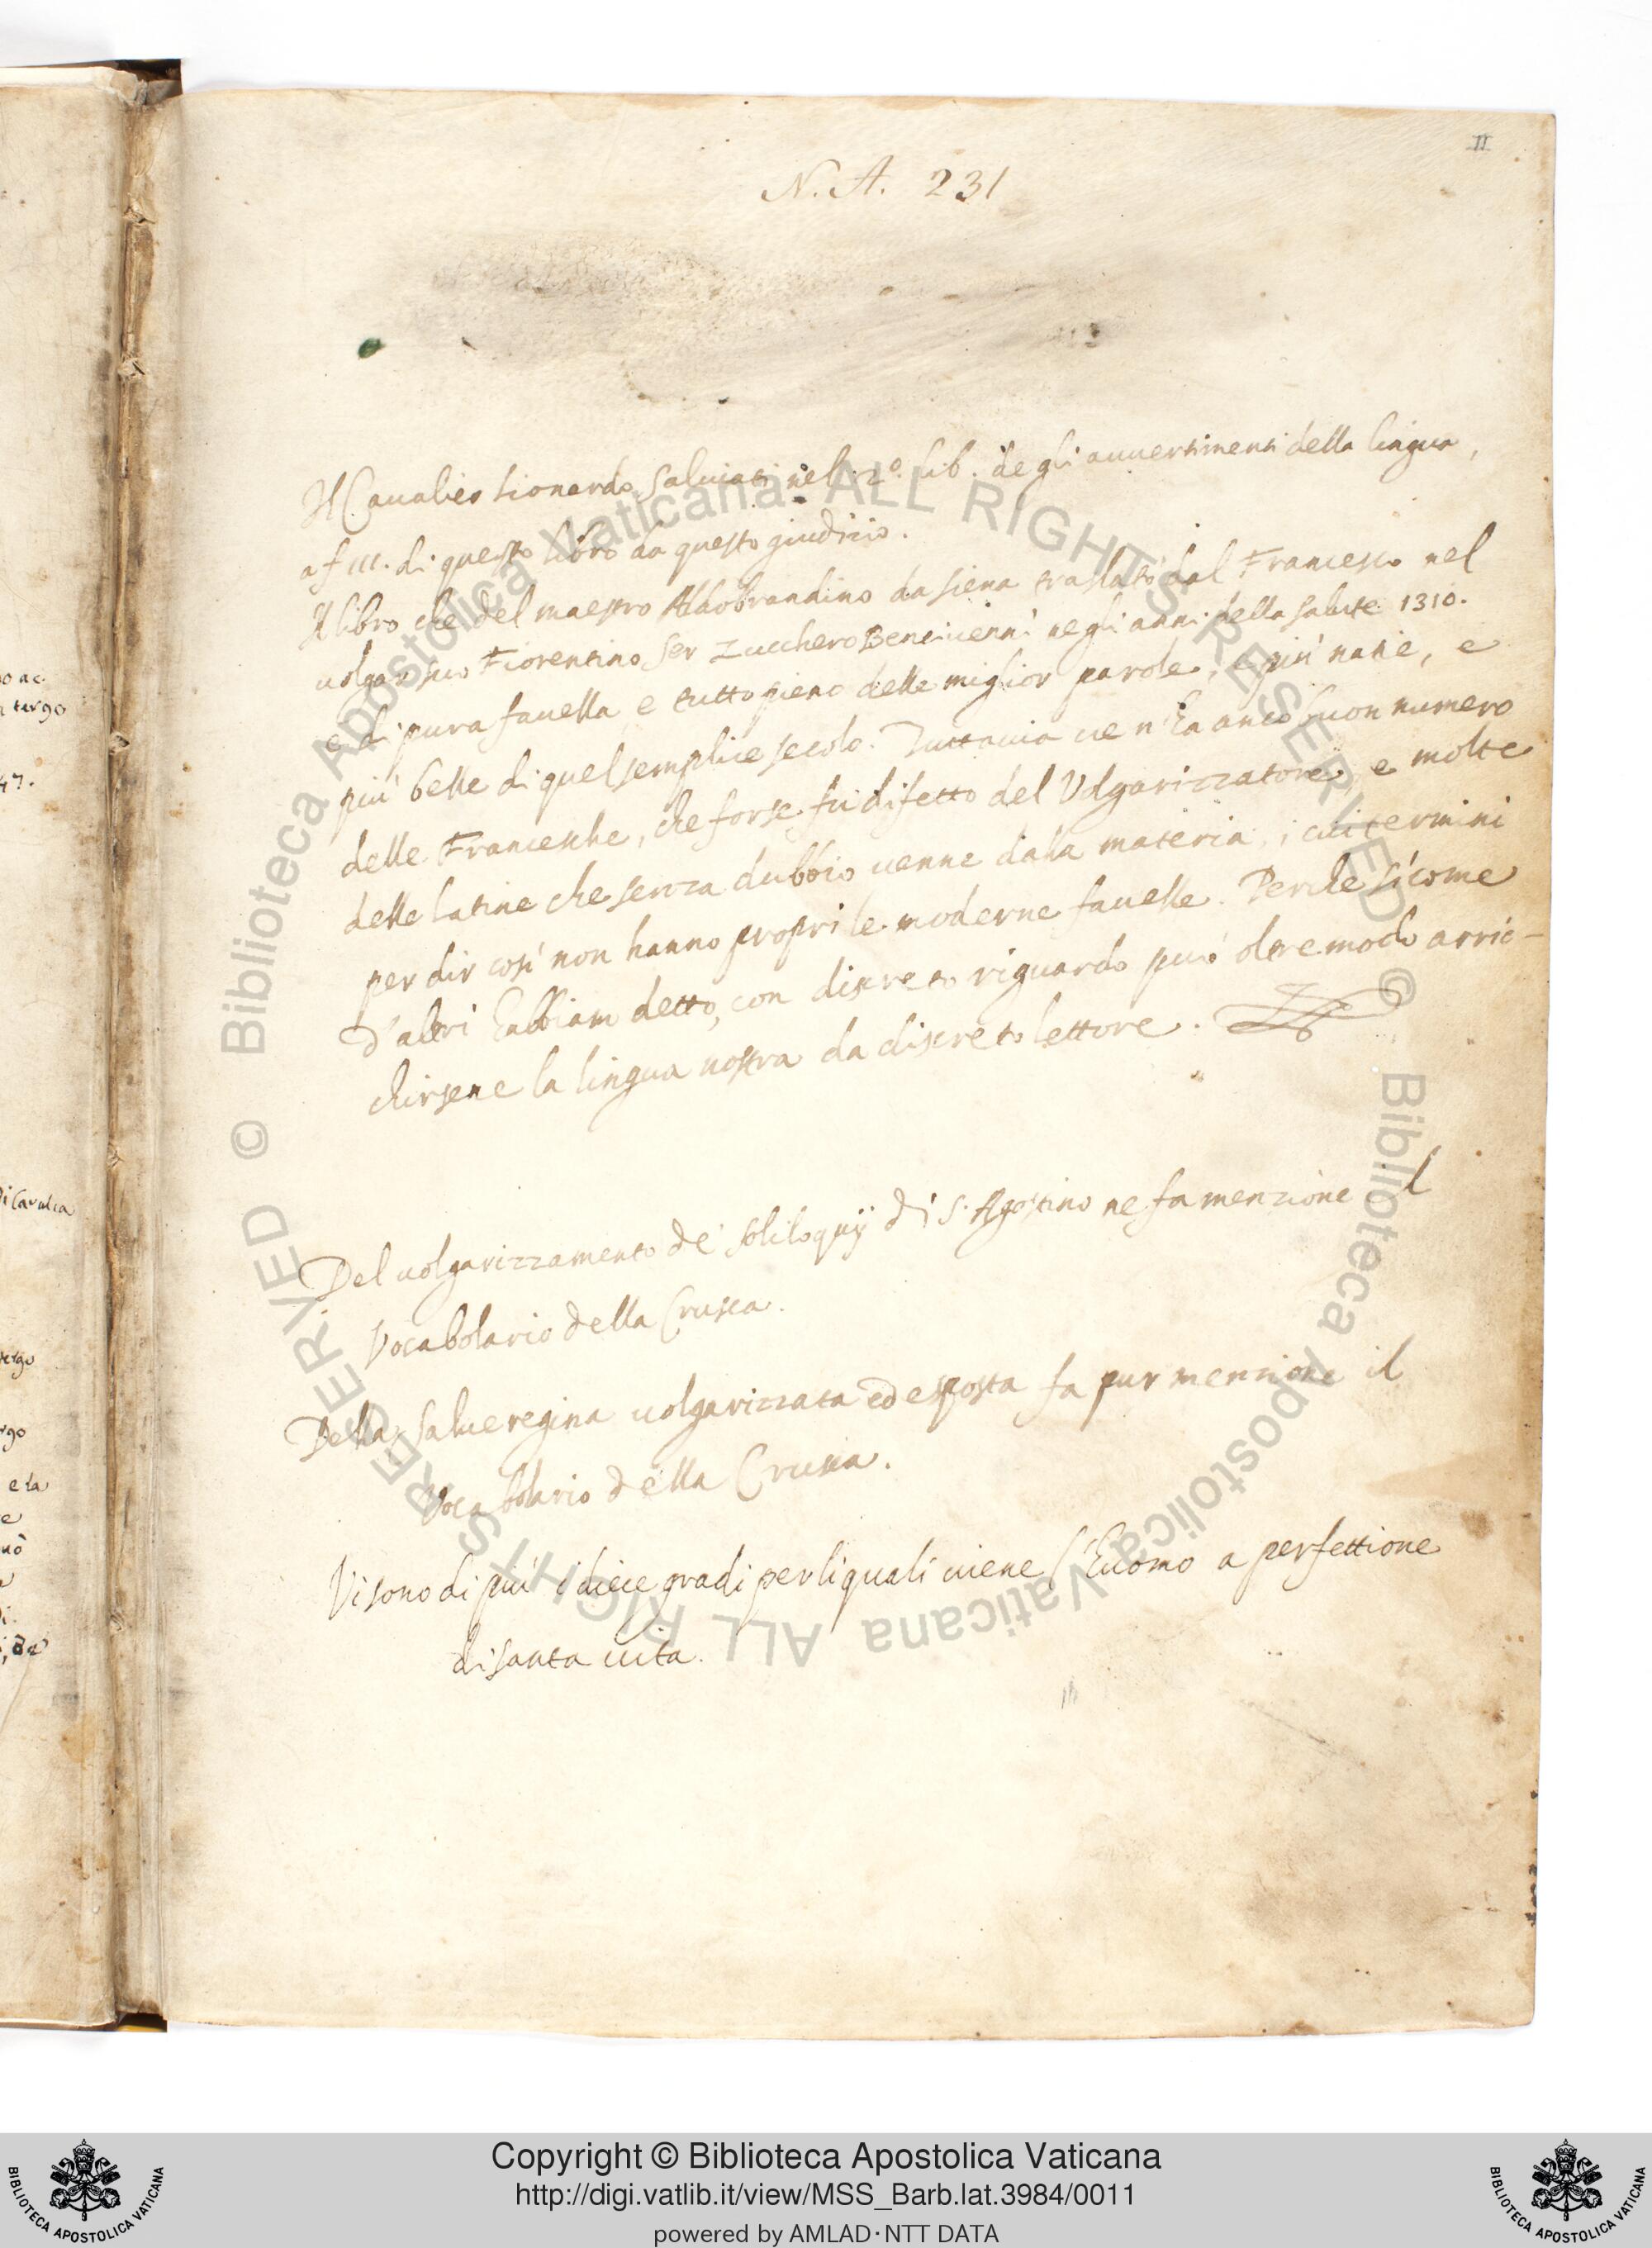 II
N. A. 231
Il Cavalier Lionardo Salviati nel 2º. lib. de gli auuertimenti della lingua,
a f 111. di questo libro da questo giudizio.
Il libro che del maestro Aldobrandino da Siena traslatò dal Francesco nel
uolgar suo Fiorentino Ser Zucchero Benciuenni negli anni della salute 1310.
e di pura fauella e tutto pieno delle miglior parole, e più natie, e
più belle di quel semplice secolo. Tuttauia ue n'ha anco buon numero
delle Francesche, che forse fu difetto del Volgarizzatore, e molte
delle latine che senza dubbio uenne dalla materia, i cui termini
per dir così non hanno propri le moderne fauelle. Perche sicome
d'altri habbiam detto, con discreto riguardo può oltre modo arric-
chirsene la lingua nostra da discreto lettore.
Del uolgarizzamento de' soliloquij di S. Agostino ne fa menzione il
Vocabolario della Crusca.
Della Salueregina uolgarizzata ed esposta fa pur menzione il
Vocabolario della Crusca.
Vi sono di più i diece gradi per li quali uiene l'huomo a perfettione
di santa uita.
47.
di Caualca
tergo
e la
© Biblioteca Apostolica Vaticana ALL RIGHTS RESERVED
© Biblioteca Apostolica Vaticana ALL RIGHTS RESERVED
Copyright © Biblioteca Apostolica Vaticana
http://digi.vatlib.it/view/MSS_Barb.lat.3984/0011
powered by AMLAD·NTT DATA
BIBLIOTECA APOSTOLICA VATICANA
BIBLIOTECA APOSTOLICA VATICANA